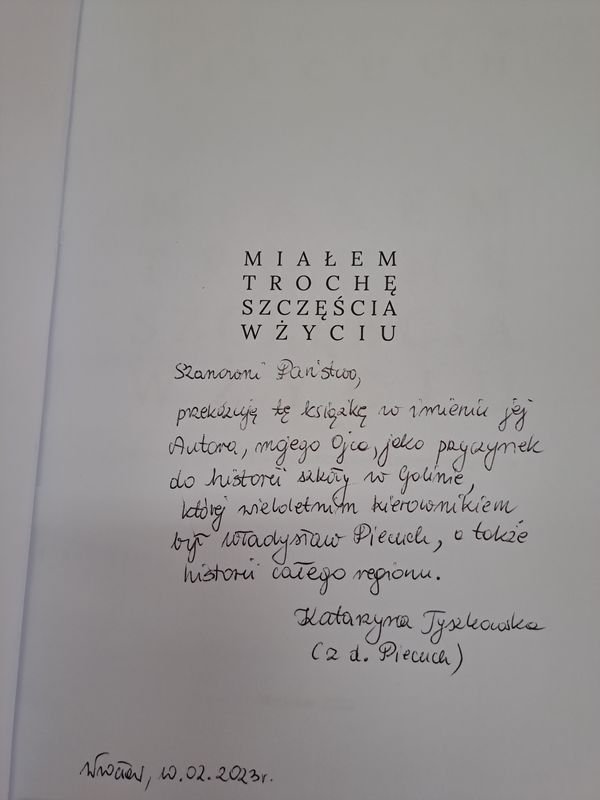 MIAŁEM
TROCHĘ
SZCZĘŚCIA
W ŻYCIU
Szanowni Państwo,
przekazuję tę książkę w imieniu jej
Autora, mojego Ojca, jako przyczynek
do historii szkoły w Golinie,
której wieloletnim kierownikiem
był Władysław Piecuch, a także
historii całego regionu.
Katarzyna Tyszkowska
(z d. Piecuch)
Wrocław, 10.02.2023r.